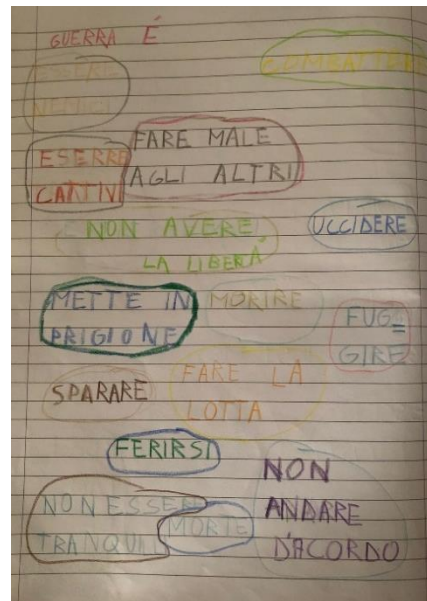 GUERRA É
ESSERE
NEMICI
COMBATTERE
ESERRE
CATTIVI
FARE MALE
AGLI ALTRI
NON AVERE
LA LIBERÁ
UCCIDERE
METTE IN
PRIGIONE
MORIRE
FUG=
GIRE
SPARARE
FARE LA
LOTTA
FERIRSI
NON
ANDARE
D'ACORDO
NON ESSERE
TRANQUIL
MORTE